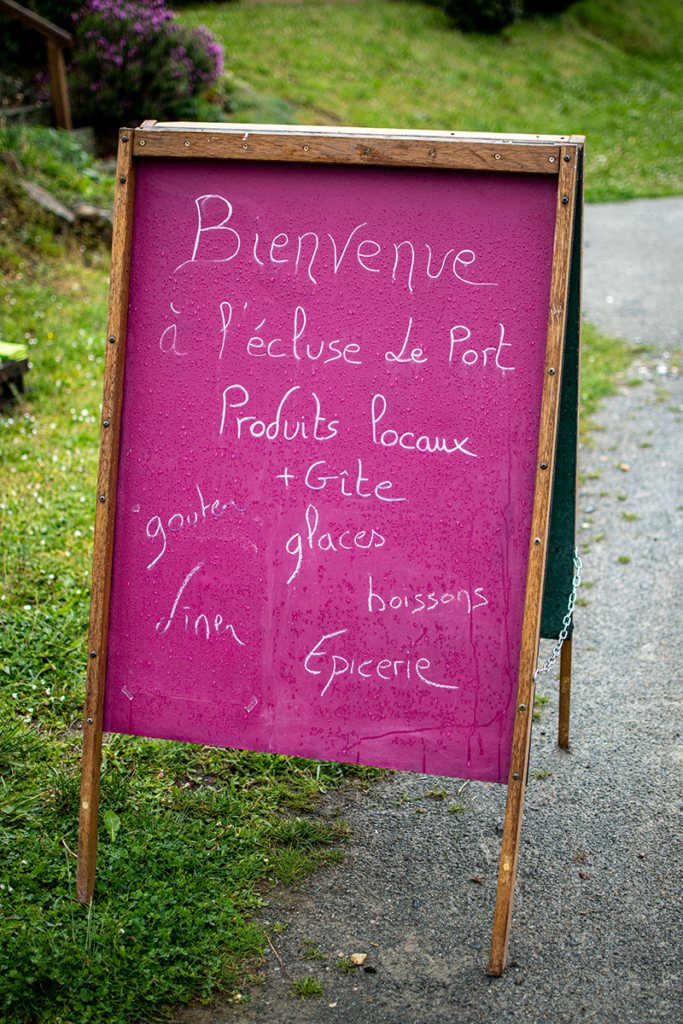 Bienvenue
à l'écluse Le Port
Produits locaux
+ Gîte
gouter
glaces
boissons
diner
Epicerie